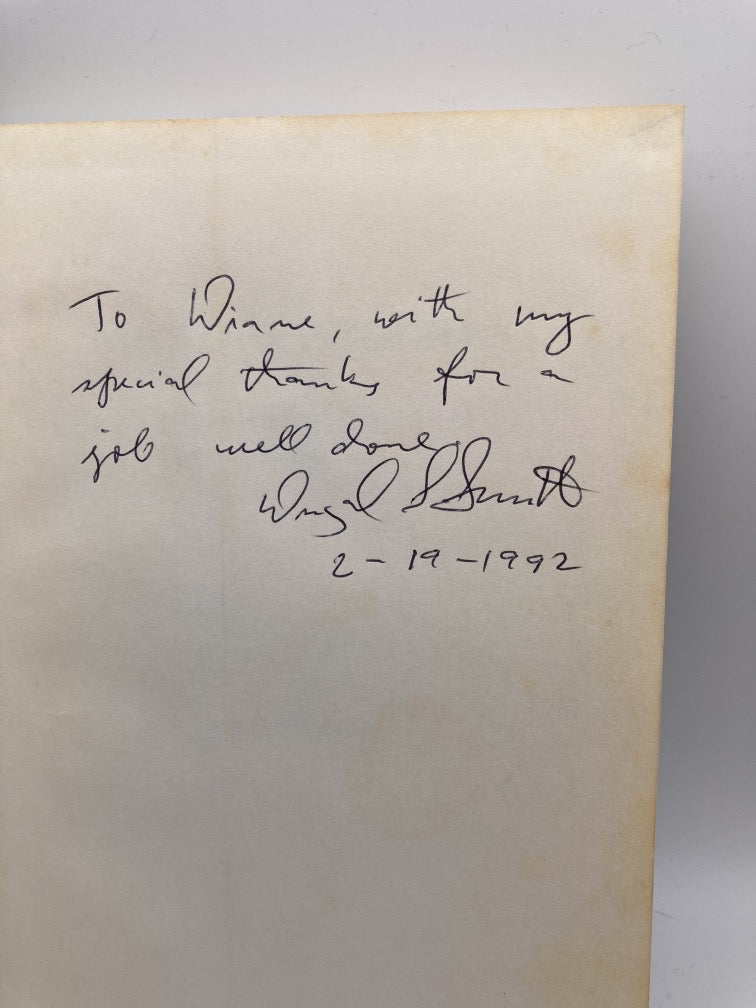 To Diane, with my
special thanks for a
job well done
Smith
2-19-1992